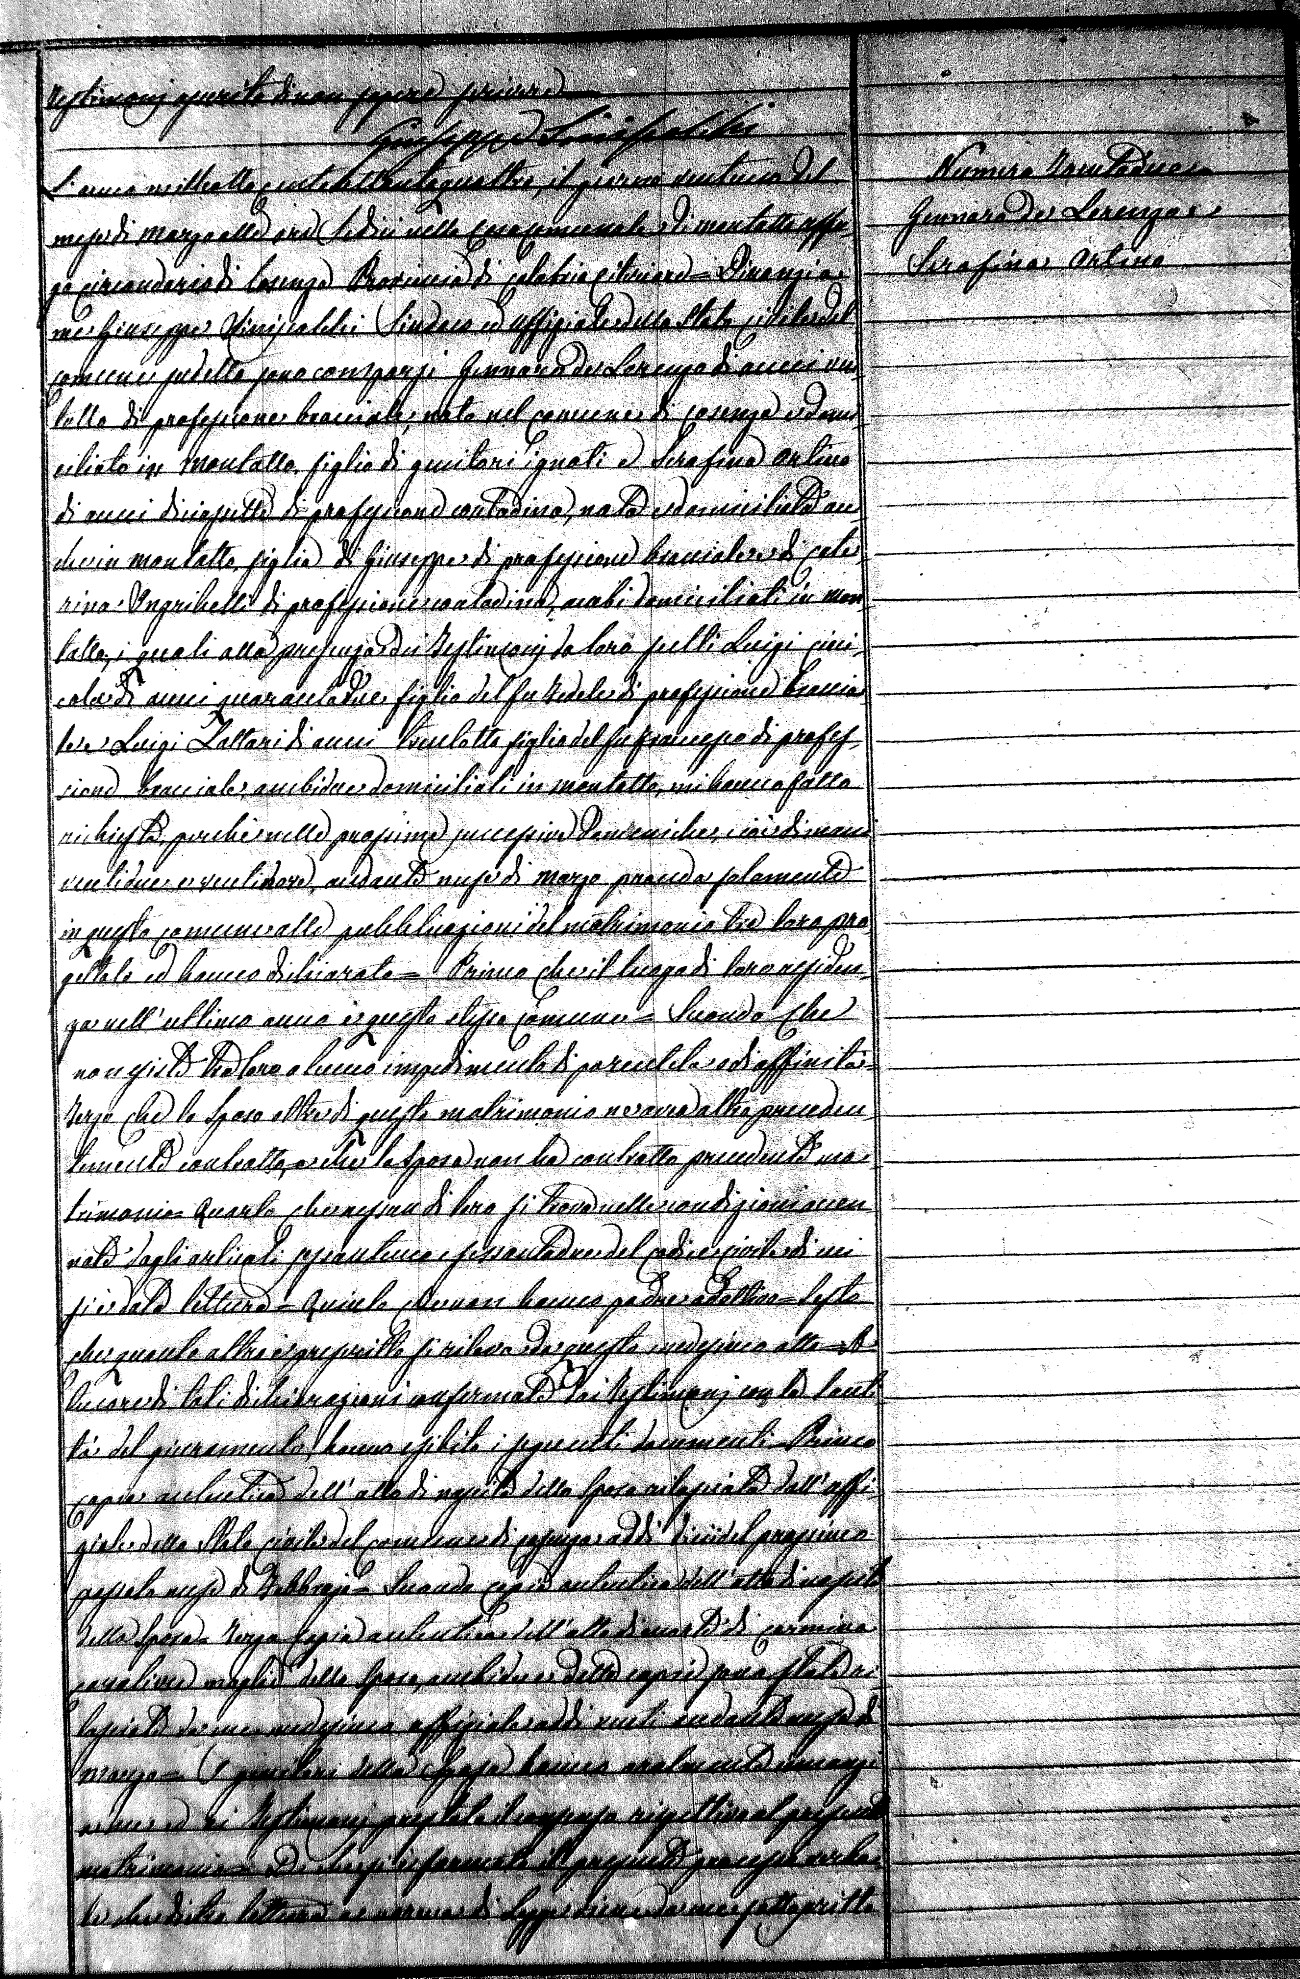 testimonj asserito di non sapere scrivere
Giuseppe Siniscalchi
Numero trentadue
Gennaro de Lorenzo e
Serafina Artino
L'anno mille otto cento settantaquattro, il giorno ventuno del
mese di marzo alle ore sedici nella Casa comunale di montalto uffu
go circondario di Cosenza Provincia di calabria citeriore = Dinanzi a
me Giuseppe Siniscalchi Sindaco ed uffiziale dello Stato civile del
comune sudetto sono comparsi Gennaro de Lorenzo di anni
di professione bracciale, nato nel comune di cosenza e domi
ciliato in montalto, figlio di genitori ignoti e Serafina Artino
di anni diciasette di professione contadina, nata e domiciliata an
che in montalto, figlia di Giuseppe di professione bracciale e di cate
rina di professione contadina, ambi domiciliati in mon
talto, i quali alla presenza dei testimonj da loro scelti Luigi
di anni quarantadue figlio del fu Fedele di professione braccia
le e Luigi Zaffari di anni trentotto figlio del fu Francesco di profes
sione bracciale, ambidue domiciliati in montalto, mi hanno fatto
richiesta, perchè nelle prossime successive Domeniche, cioè dimani
ventidue e ventinove, andante mese di marzo proceda solamente
in questo comune alle pubblicazioni del matrimonio tra loro pro
gettato ed hanno dichiarato = Primo che il luogo di loro residen
za nell'ultimo anno è questo stesso Comune = Secondo Che
non esiste tra loro alcuno impedimento di parentela o di affinità =
Terzo che lo Sposo oltre di questo matrimonio ne avea altro preceden
temente contratto, e che la Sposa non ha contratto precedente ma
trimonio = Quarto che nessun di loro si trova nelle condizioni accen
nate dagli articoli sessantuno e sessantadue del codice civile di cui
si è data lettura = Quinto che non hanno padre adottivo = Sesto
che quanto altro è prescritto si rileva da questo medesimo atto = A
vicore di tali dichiarazioni confermate dai testimonj con la santi
tà del giuramento, hanno esibito i seguenti documenti = Primo
copia autentica dell'atto di nascita dello Sposo rilasciata dall'uffi
ziale dello Stato civile del comune di cosenza addì dieci del prossimo
passato mese di Febbrajo = Secondo copia autentica dell'atto di nascita
della Sposa = Terzo copia autentica dell'atto di morte di carmina
moglie dello Sposo, ambidue dette copie sono state ri
lasciate da me medesimo uffiziale addì venti andante mese di
marzo = I genitori della Sposa hanno oralmente innanzi
a me ed ai testimonj prestato il consenso rispettivo al presente
matrimonio = Di che si è formato il presente processo verba
le che dietro lettura a norma di Legge viene da me sottoscritto